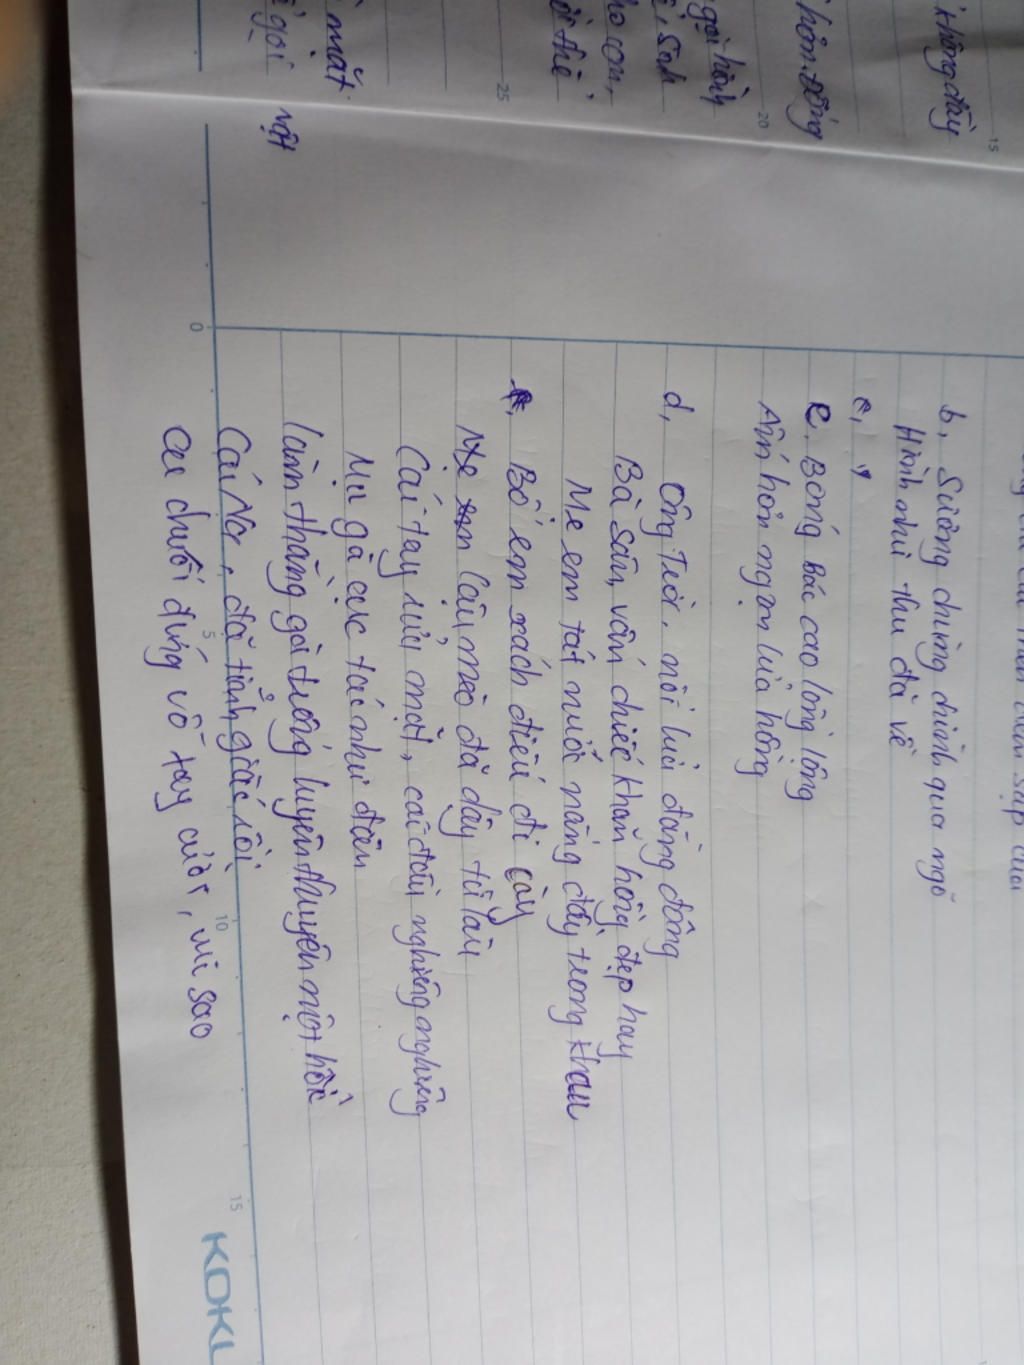 không đầy
15
hôm
20
gọi
cho con,
thế
25
mắt
gọi
vật
b, Sương chùng chình qua ngõ
Hình như thu đã về
c,
e, Bóng bác cao lồng lộng
Ấm hơn ngọn lửa hồng
d, Ông Trời, nổi lửa đằng đông
Bà Sân, vấn chiếc khăn hồng đẹp hay
Mẹ em tát nước nắng đầy trong khau
Bố em xách điếu đi cày
Mẹ lậu mèo đã dậy từ lâu
Cái tay rửa mặt, cái đầu nghiêng nghiêng
Mụ gà cục tác như điên
làm thằng gà trống huyên thuyên một hồi
Cái Na, đã tỉnh giấc rồi
Cu chuối đứng vỗ tay cười, vui sao
0
5
10
15